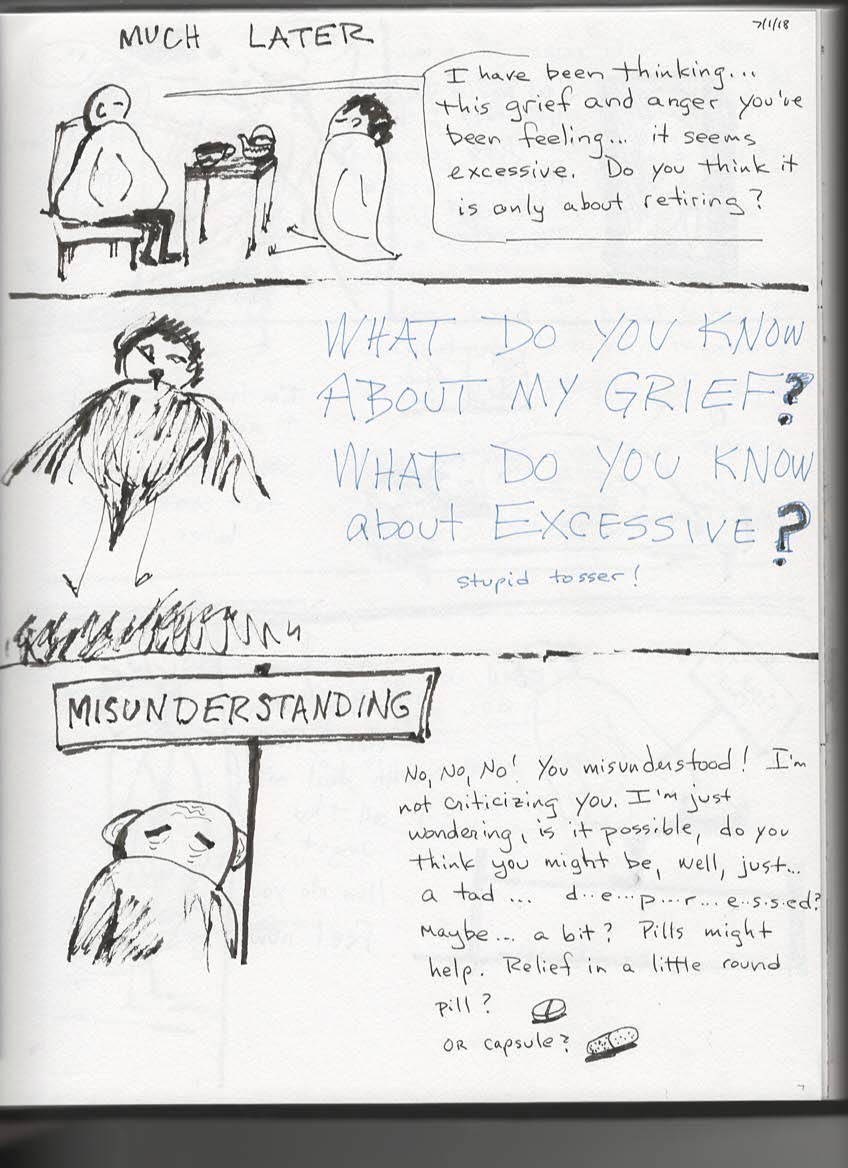 7/1/18
MUCH LATER
I have been thinking...
this grief and anger you've
been feeling... it seems
excessive. Do you think it
is only about retiring?
WHAT DO YOU KNOW
ABOUT MY GRIEF?
WHAT DO YOU KNOW
about EXCESSIVE?
stupid tosser!
MISUNDERSTANDING
No, No, No! You misunderstood! I'm
not criticizing you. I'm just
wondering, is it possible, do you
think you might be, well, just...
a tad ... d..e...p...r...e.s.s.ed?
Maybe... a bit? Pills might
help. Relief in a little round
pill?
OR capsule?
7